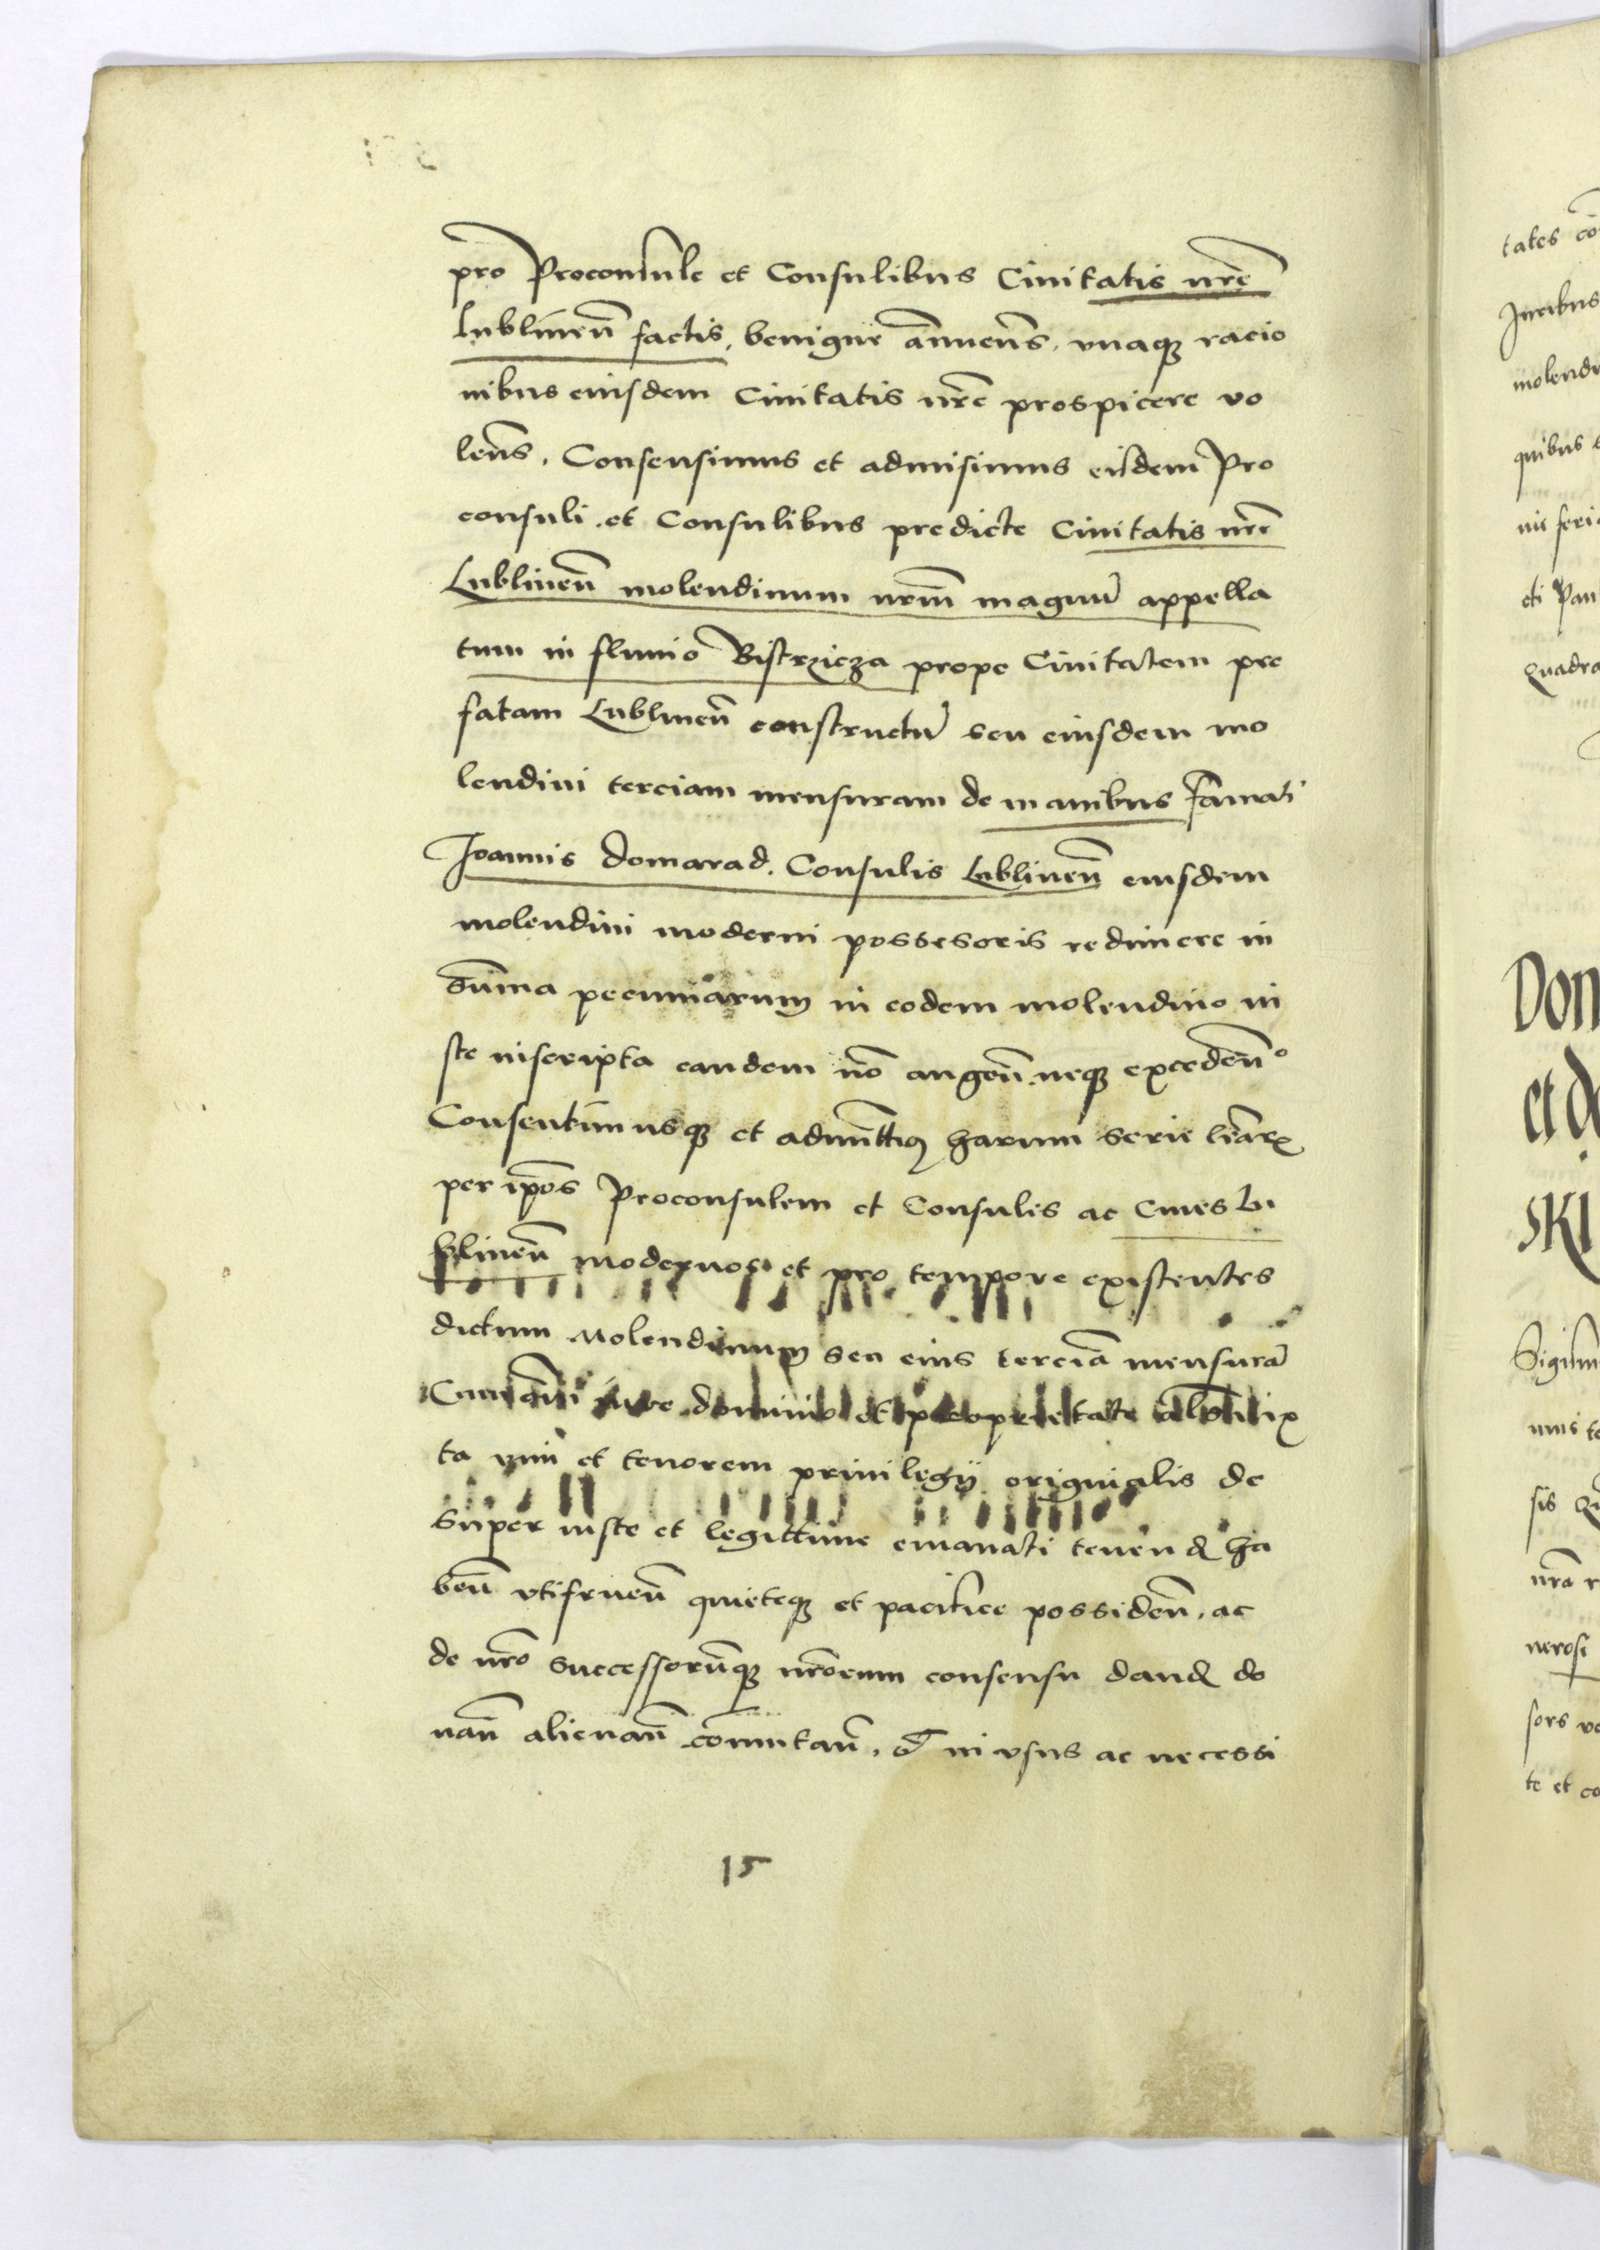 pro Proconsule et Consulibus Ciuitatis nrē
Lublineñ factis, benigne ānuens, vnaqꝫ racio
nibus eiusdem Ciuitatis nrē prospicere vo
lens, Consensimus et admisimus eisdem Pro
consuli et Consulibus predicte Ciuitatis nrē
Lublineñ molendinum nrm̄ magnū appella
tum in fluuio Bistrzicza prope Ciuitatem pre
fatam Lublineñ constructū seu eiusdem mo
lendini terciam mensuram de manibus famati
Joannis Domarad. Consulis Lublineñ eiusdem
molendini moderni possesoris redimere in
sūma pecuniarum in eodem molendino iu
ste inscripta eandem nō augeñ neqꝫ excedeñ
Consentimusqꝫ et admittimꝰ harum serie lrārꝝ
per ip̄os Proconsulem et Consules ac Ciues Lu
blineñ modernos et pro tempore existentes
dictum Molendinum seu eius terciā mensurā
Cum oīni iure dominio et proprietate iux
ta vim et tenorem priuilegij originalis de
super iuste et legittime emanati tenend ha
beñ vtifrueñ quieteqꝫ et pacifice possideñ, ac
de nrō successorūqꝫ nrōrum consensu dand do
nañ alienañ cōmutañ, et in vsus ac necessi
15
tates
Juribus
molendi
quibus
eti Pau
Quadra
DOM
et de
SKI
Sigism
nrā
nerosi
sors
te et co